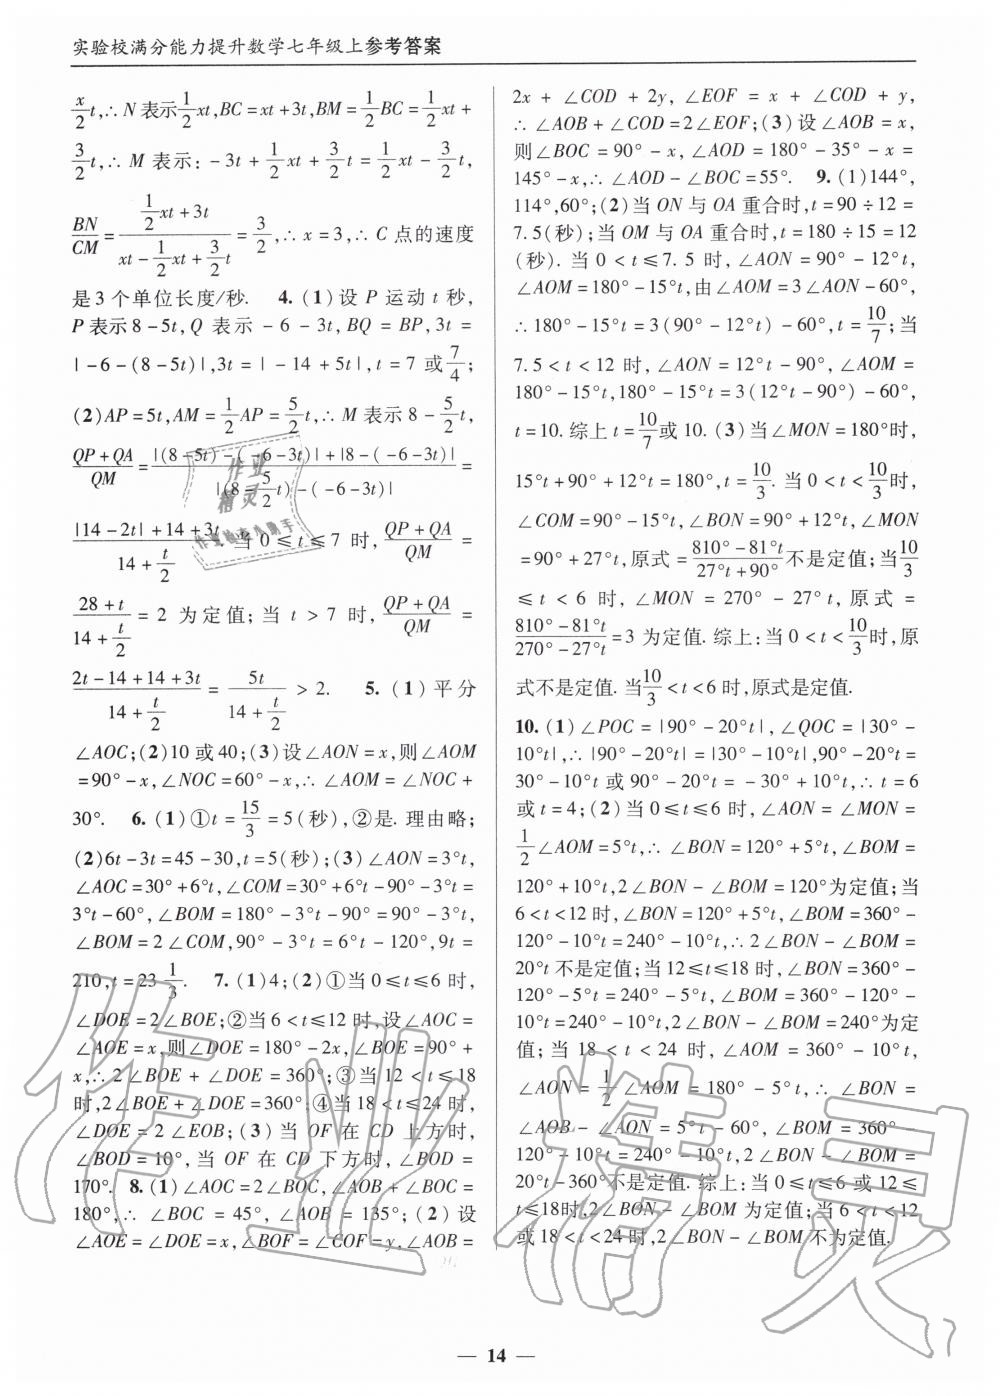 实验校满分能力提升数学七年级上参考答案
x/2 t,∴N 表示 1/2 xt,BC=xt+3t,BM=1/2 BC=1/2 xt+
3/2 t,∴M 表示:-3t+1/2 xt+3/2 t=1/2 xt-3/2 t,
BN/CM=(1/2 xt+3t)/(xt-1/2 xt+3/2 t)=3/2,∴x=3,∴C 点的速度
是 3 个单位长度/秒. 4. (1)设 P 运动 t 秒,
P 表示 8-5t,Q 表示 -6-3t,BQ=BP,3t=
|-6-(8-5t)|,3t=|-14+5t|,t=7 或 7/4;
(2)AP=5t,AM=1/2 AP=5/2 t,∴M 表示 8-5/2 t,
(QP+QA)/QM=(|(8-5t)-(-6-3t)|+|8-(-6-3t)|)/(|(8-5/2 t)-(-6-3t)|)=
(|14-2t|+14+3t)/(14+t/2). 当 0≤t≤7 时,(QP+QA)/QM=
(28+t)/(14+t/2)=2 为定值;当 t>7 时,(QP+QA)/QM=
(2t-14+14+3t)/(14+t/2)=5t/(14+t/2)>2. 5. (1)平分
∠AOC;(2)10 或 40;(3)设∠AON=x,则∠AOM
=90°-x,∠NOC=60°-x,∴∠AOM=∠NOC+
30°. 6. (1)①t=15/3=5(秒),②是. 理由略;
(2)6t-3t=45-30,t=5(秒);(3)∠AON=3°t,
∠AOC=30°+6°t,∠COM=30°+6°t-90°-3°t=
3°t-60°,∠BOM=180°-3°t-90°=90°-3°t,
∠BOM=2∠COM,90°-3°t=6°t-120°,9t=
210,t=23 1/3. 7. (1)4;(2)①当 0≤t≤6 时,
∠DOE=2∠BOE;②当 6<t≤12 时,设∠AOC=
∠AOE=x,则∠DOE=180°-2x,∠BOE=90°+
x,∴2∠BOE+∠DOE=360°;③当 12<t≤18
时,2∠BOE+∠DOE=360°;④当 18<t≤24 时,
∠DOE=2∠EOB;(3)当 OF 在 CD 上方时,
∠BOD=10°,当 OF 在 CD 下方时,∠BOD=
170°. 8. (1)∠AOC=2∠BOC,∠AOB+∠BOC=
180°,∴∠BOC=45°,∠AOB=135°;(2)设
∠AOE=∠DOE=x,∠BOF=∠COF=y,∠AOB=
2x+∠COD+2y,∠EOF=x+∠COD+y,
∴∠AOB+∠COD=2∠EOF;(3)设∠AOB=x,
则∠BOC=90°-x,∠AOD=180°-35°-x=
145°-x,∴∠AOD-∠BOC=55°. 9. (1)144°,
114°,60°;(2)当 ON 与 OA 重合时,t=90÷12=
7.5(秒);当 OM 与 OA 重合时,t=180÷15=12
(秒). 当 0<t≤7.5 时,∠AON=90°-12°t,
∠AOM=180°-15°t,由∠AOM=3∠AON-60°,
∴180°-15°t=3(90°-12°t)-60°,t=10/7;当
7.5<t<12 时,∠AON=12°t-90°,∠AOM=
180°-15°t,180°-15°t=3(12°t-90°)-60°,
t=10. 综上 t=10/7 或 10. (3)当∠MON=180°时,
15°t+90°+12°t=180°,t=10/3. 当 0<t<10/3 时,
∠COM=90°-15°t,∠BON=90°+12°t,∠MON
=90°+27°t,原式=(810°-81°t)/(27°t+90°)不是定值;当 10/3
≤t<6 时,∠MON=270°-27°t,原式=
(810°-81°t)/(270°-27°t)=3 为定值. 综上:当 0<t<10/3 时,原
式不是定值. 当 10/3<t<6 时,原式是定值.
10. (1)∠POC=|90°-20°t|,∠QOC=|30°-
10°t|,∴|90°-20°t|=|30°-10°t|,90°-20°t=
30°-10°t 或 90°-20°t=-30°+10°t,∴t=6
或 t=4;(2)当 0≤t≤6 时,∠AON=∠MON=
1/2∠AOM=5°t,∴∠BON=120°+5°t,∠BOM=
120°+10°t,2∠BON-∠BOM=120°为定值;当
6<t<12 时,∠BON=120°+5°t,∠BOM=360°-
120°-10°t=240°-10°t,∴2∠BON-∠BOM=
20°t 不是定值;当 12≤t≤18 时,∠BON=360°-
120°-5°t=240°-5°t,∠BOM=360°-120°-
10°t=240°-10°t,2∠BON-∠BOM=240°为定
值;当 18<t<24 时,∠AOM=360°-10°t,
∠AON=1/2∠AOM=180°-5°t,∴∠BON=
∠AOB-∠AON=5°t-60°,∠BOM=360°-
120°-10°t=240°-10°t,2∠BON-∠BOM=
20°t-360°不是定值. 综上:当 0≤t≤6 或 12≤
t≤18时,2∠BON-∠BOM 为定值;当 6<t<12
或 18<t<24 时,2∠BON-∠BOM 不为定值.
— 14 —
作业精灵
作业
精灵
作业检查小助手